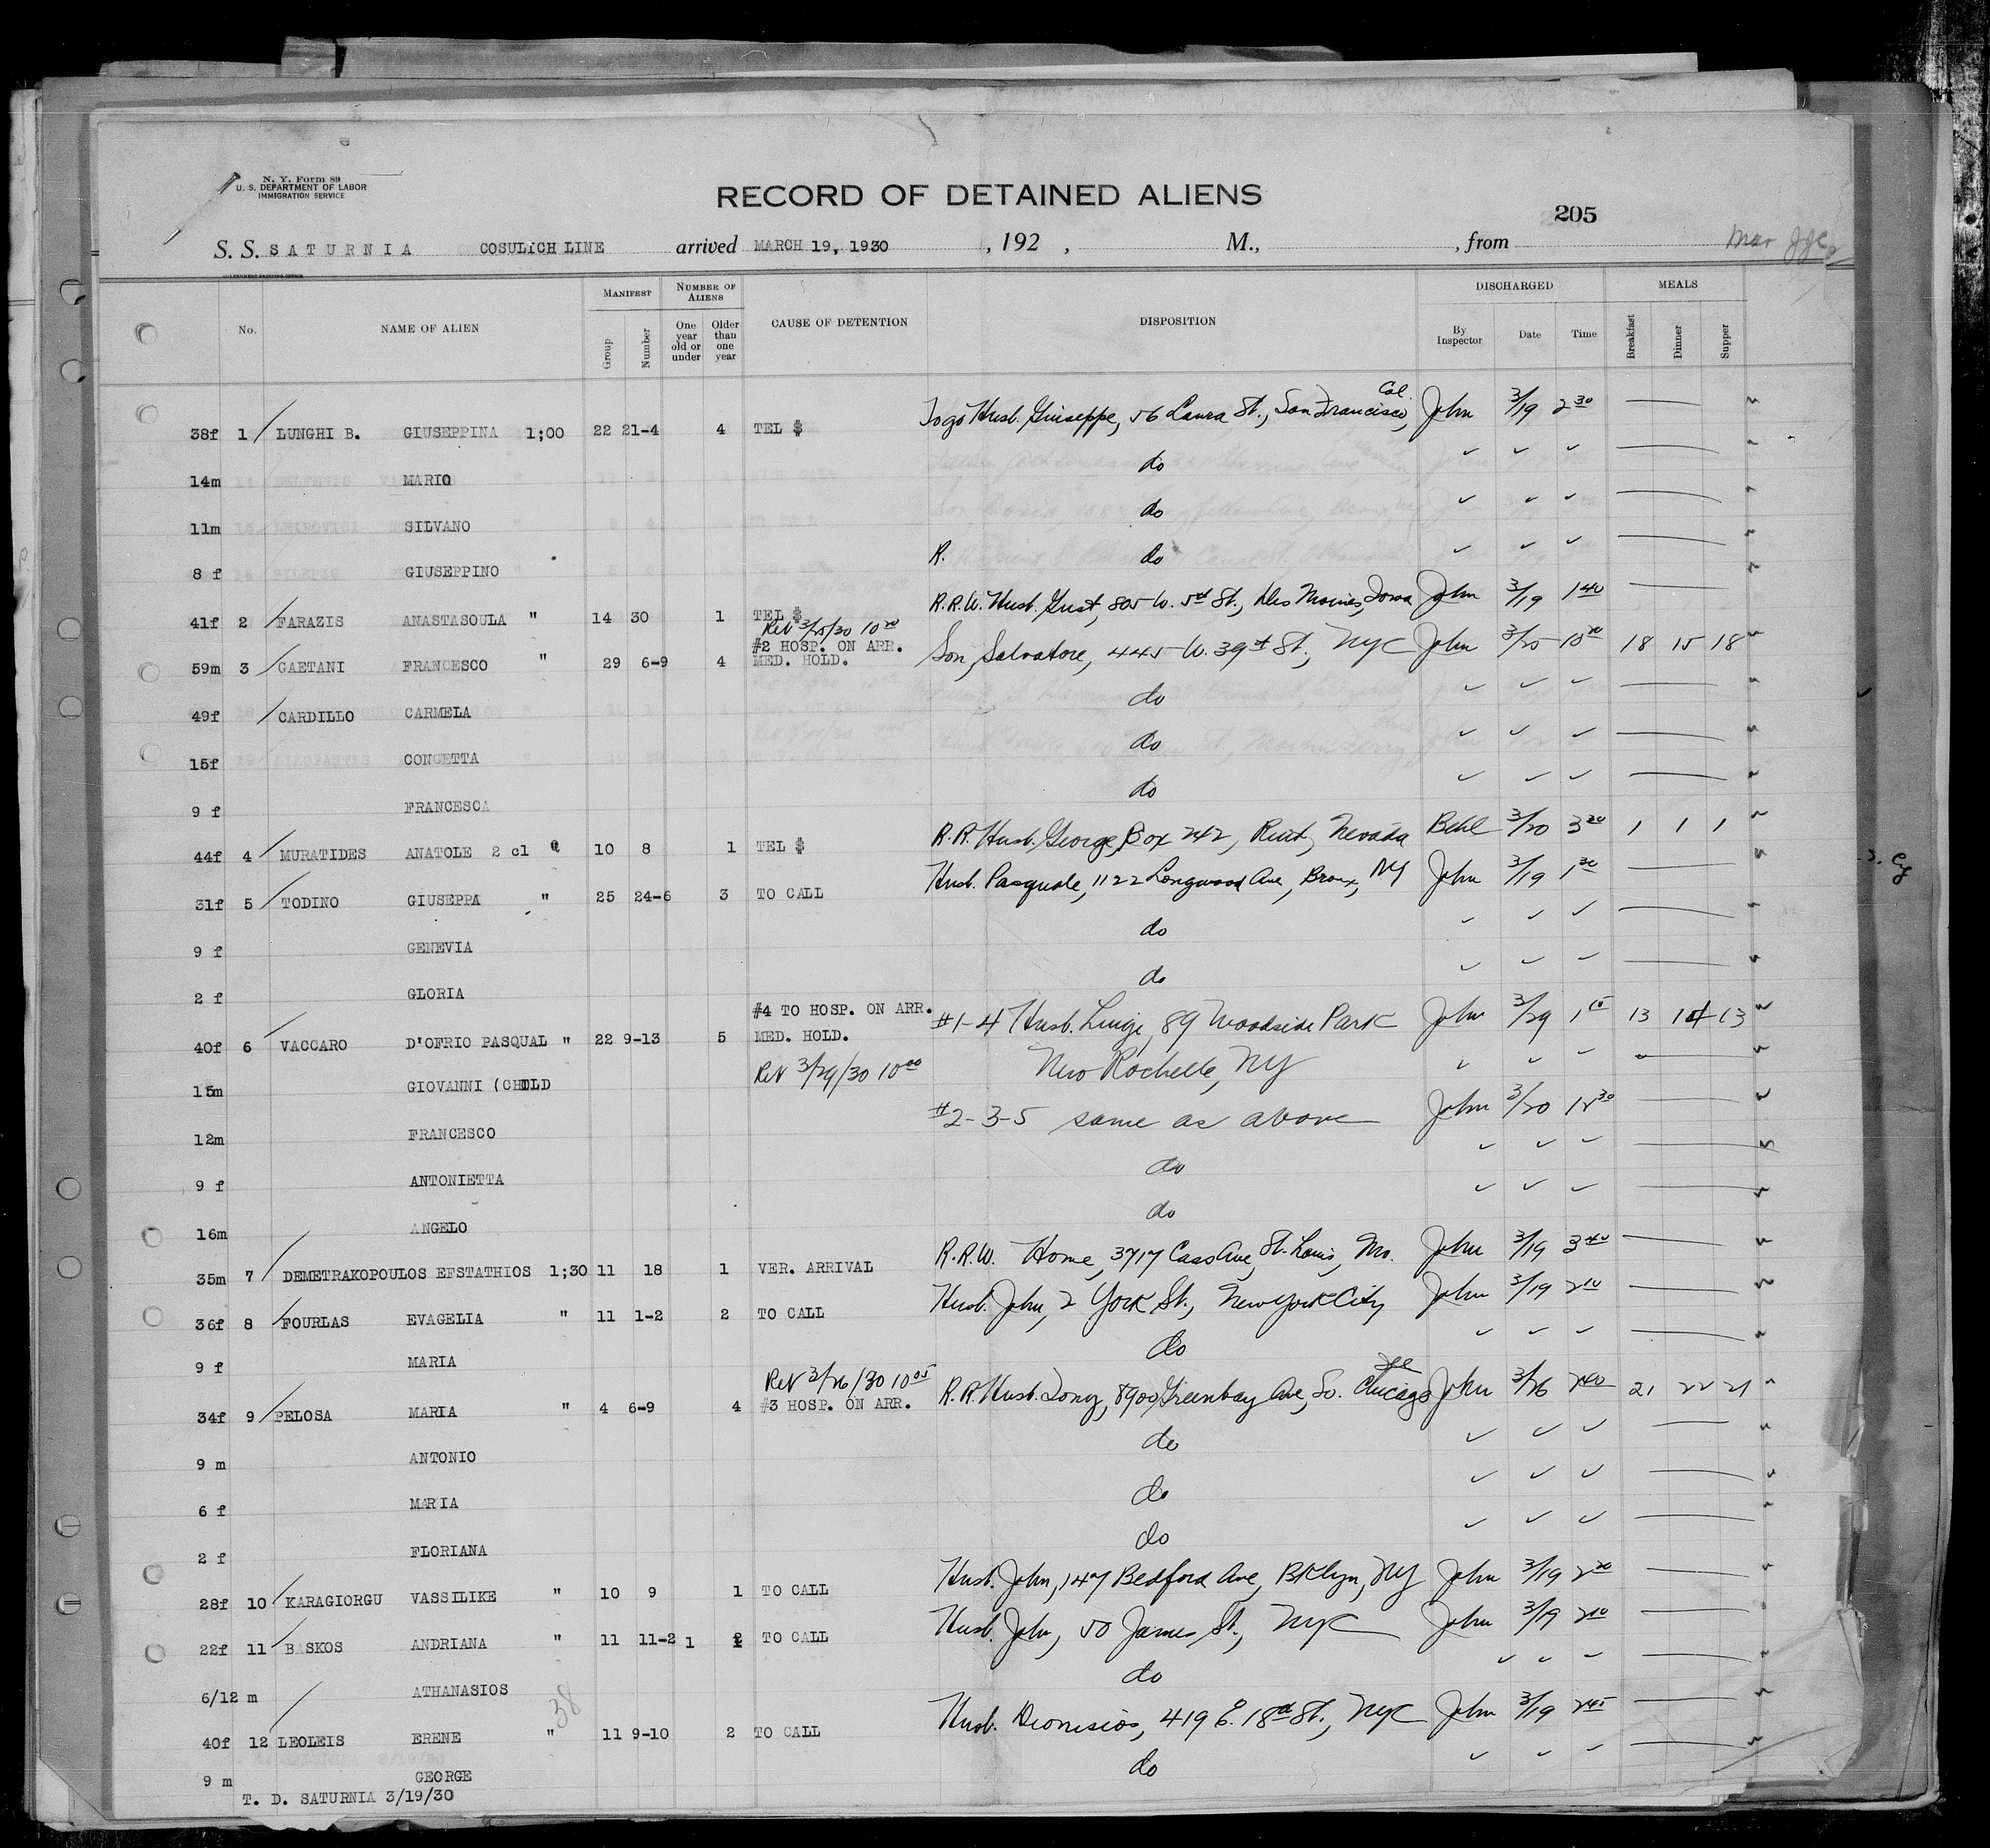 N. Y. Form 89
U. S. DEPARTMENT OF LABOR
IMMIGRATION SERVICE
RECORD OF DETAINED ALIENS
205
S. S. SATURNIA COSULICH LINE arrived MARCH 19, 1930 , 192 , M., , from
No. NAME OF ALIEN MANIFEST Group Number NUMBER OF ALIENS One year old or under Older than one year CAUSE OF DETENTION DISPOSITION DISCHARGED By Inspector Date Time MEALS Breakfast Dinner Supper
38f 1 LUNGHI B. GIUSEPPINA 1;00 22 21-4 4 TEL $ Husb. Giuseppe, 56 Laura St., San Francisco, Cal. John 3/19 2 30
14m MARIO do ✓ ✓ ✓
11m SILVANO do ✓ ✓ ✓
8 f GIUSEPPINO R. do ✓ ✓ ✓
41f 2 FARAZIS ANASTASOULA " 14 30 1 TEL $ R.R.W. Husb. Gust, 805 W. 5th St., Des Moines, Iowa John 3/19 1 40
Rev 3/25/30 10 20
#2 HOSP. ON ARR.
59m 3 GAETANI FRANCESCO " 29 6-9 4 MED. HOLD. Son, Salvatore, 445 W. 39th St., NYC John 3/25 10 20 18 15 18
49f CARDILLO CARMELA do ✓ ✓ ✓
15f CONCETTA do ✓ ✓ ✓
9 f FRANCESCA do ✓ ✓ ✓
44f 4 MURATIDES ANATOLE 2 cl 10 8 1 TEL $ R.R. Husb. George, Box 242, Nevada Behl 3/20 3 20 1 1 1
31f 5 TODINO GIUSEPPA " 25 24-6 3 TO CALL Husb. Pasquale, 1122 Longwood Ave, Bronx, NY John 3/19 1 30
9 f GENEVIA do ✓ ✓ ✓
2 f GLORIA do ✓ ✓ ✓
#4 TO HOSP. ON ARR.
40f 6 VACCARO D'OFRIO PASQUAL " 22 9-13 5 MED. HOLD. #1-4 Husb. Luigi, 89 Woodside Park John 3/29 1 15 13 14 13
15m GIOVANNI (CHILD Rev 3/29/30 10 00 New Rochelle, NY ✓ ✓ ✓
12m FRANCESCO #2-3-5 same as above John 3/20 12 30
9 f ANTONIETTA do ✓ ✓ ✓
16m ANGELO do ✓ ✓ ✓
35m 7 DEMETRAKOPOULOS EFSTATHIOS 1;30 11 18 1 VER. ARRIVAL R.R.W. Home, 3717 Cass Ave, St. Louis, Mo. John 3/19 3 40
36f 8 FOURLAS EVAGELIA " 11 1-2 2 TO CALL Husb. John, 2 York St., New York City John 3/19 2 10
9 f MARIA do ✓ ✓ ✓
Rev 3/26/30 10 05
34f 9 PELOSA MARIA " 4 6-9 4 #3 HOSP. ON ARR. R.R. Husb. Tony, 8900 Greenbay Ave, So. Chicago John 3/26 2 40 21 22 21
9 m ANTONIO do ✓ ✓ ✓
6 f MARIA do ✓ ✓ ✓
2 f FLORIANA do ✓ ✓ ✓
28f 10 KARAGIORGU VASSILIKE " 10 9 1 TO CALL Husb. John, 147 Bedford Ave, Bklyn, NY John 3/19 2 20
22f 11 BASKOS ANDRIANA " 11 11-2 1 2 TO CALL Husb. John, 50 James St., NYC John 3/19 2 10
6/12 m ATHANASIOS do ✓ ✓ ✓
38
40f 12 LEOLEIS ERENE " 11 9-10 2 TO CALL Husb. Dionisios, 419 E. 18th St., NYC John 3/19 2 45
9 m GEORGE do ✓ ✓ ✓
T. D. SATURNIA 3/19/30